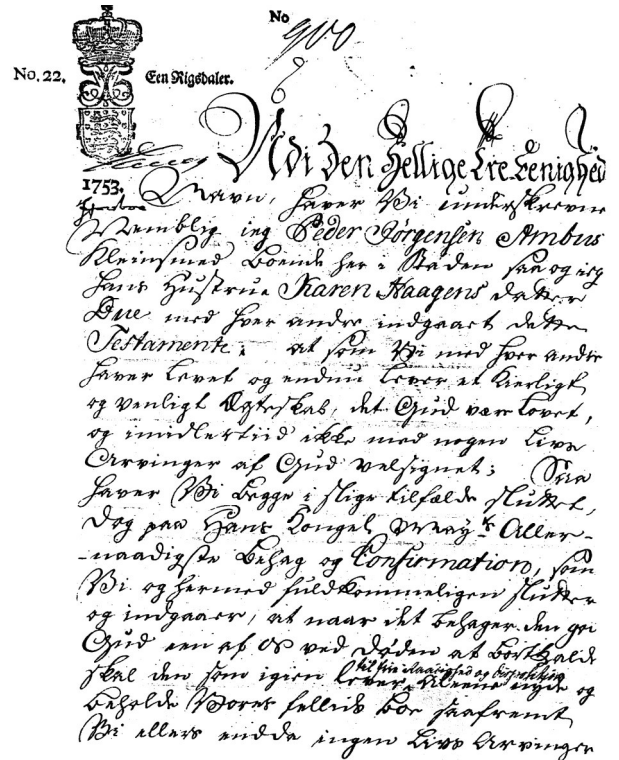 No
900
No. 22. Een Rigsdaler.
Udi Den Hellige Tre Eenighed
1753.
Navn, haver Vi underskrevne
Nemblig ieg Peder Jørgensen Ambus
Kleinsmed boende her i Staden saa og ieg
hans Hustrue Karen Haagens datter
Due med hver andre indgaaet dette
Testamente, at som Vi med hver andre
haver Levet og endnu lever et Kierligt
og venligt Ægteskab, det Gud være lovet,
og imidlertiid ikke med nogen Livs
Arvinger af Gud velsignet; Saa
haver Vi begge i slige tilfælde sluttet,
dog paa Hans Kongel. May.ts Aller-
-naadigste behag og Confirmation, som
Vi og hermed fuldkommeligen slutter
og indgaaer, at naar det behager den
Gud een af os ved døden at bortkalde
til frie Raadighed og disposition
skal den som igien lever, alleene nyde og
beholde Vores fælles boe saafremt
Vi ellers endda ingen Livs Arvinger